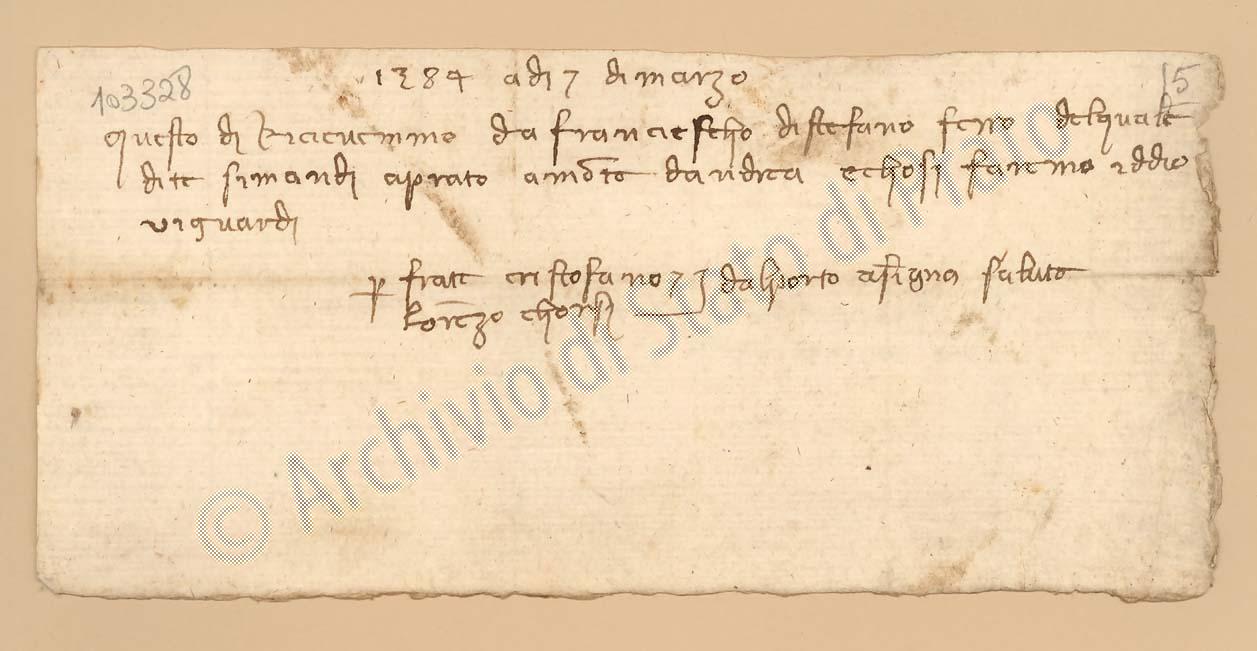 103328
15
1384 adi 7 di marzo
questo di riceuemmo da franciescho di stefano ferro del quale
dite si mandi a prato a monte d andrea e chosi faremo iddio
vi guardi
frate cristofano 7 da lporto a signa saluto
lorenzo chorsi
© Archivio di Stato di Prato